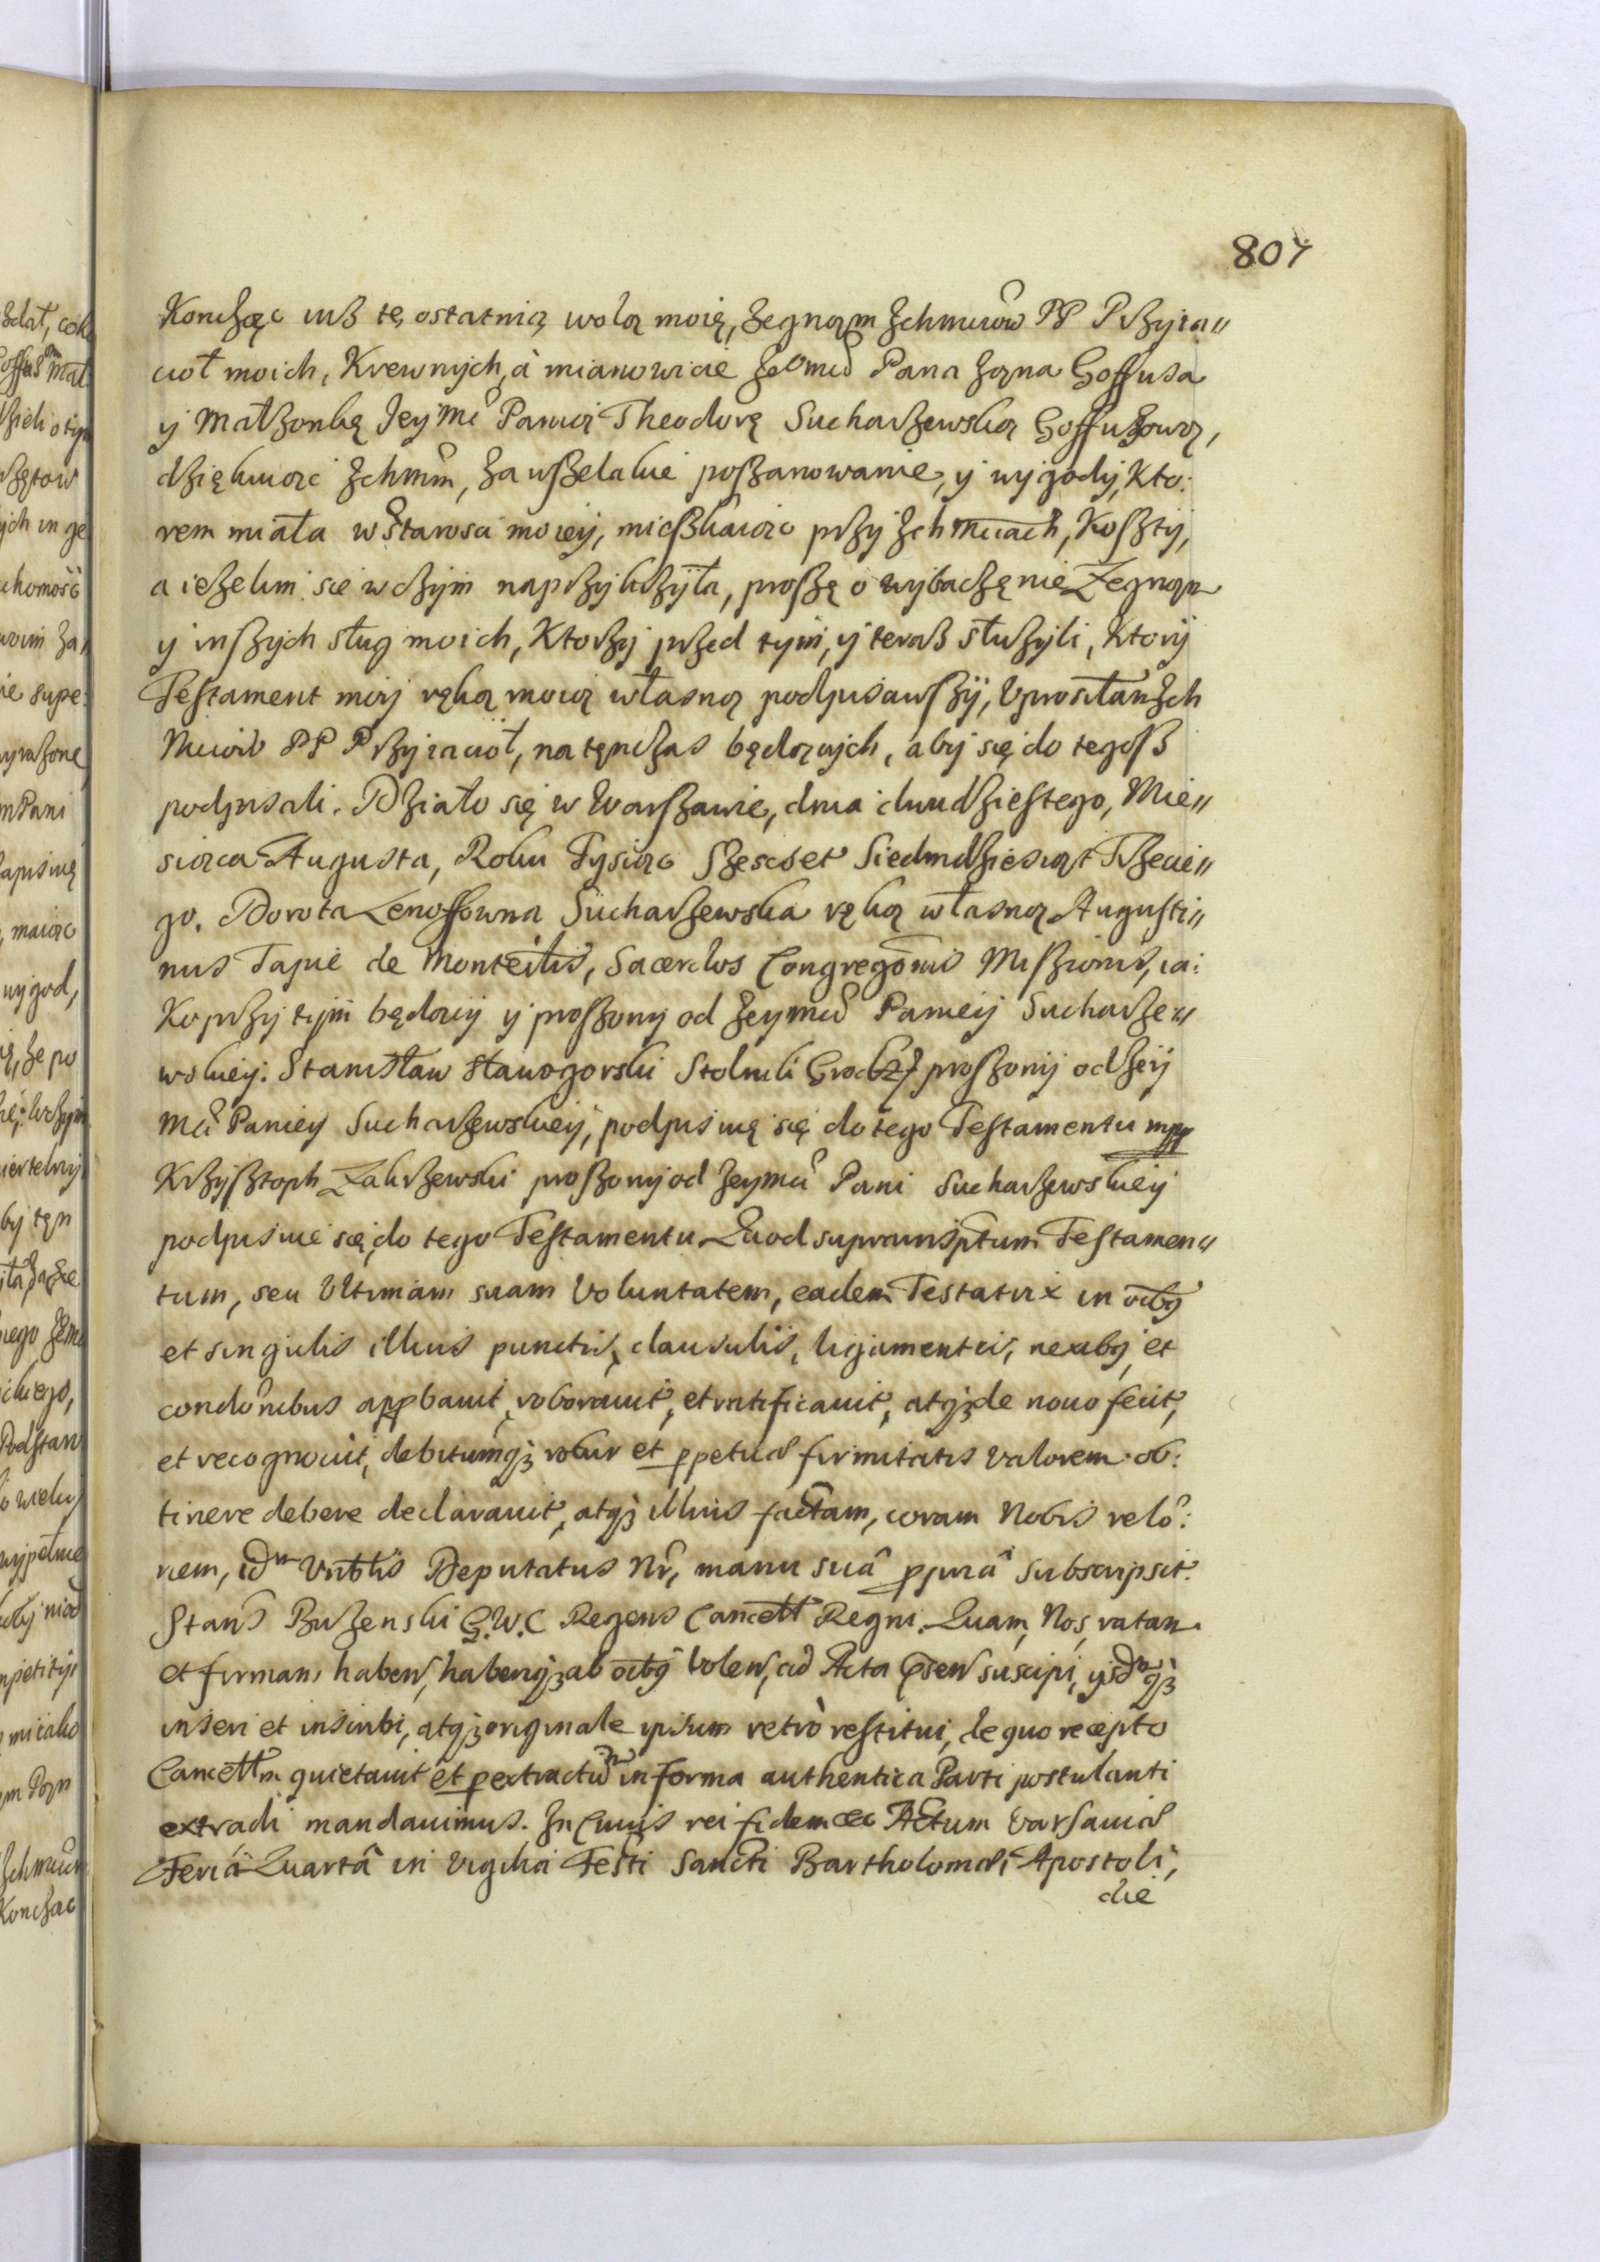 807
Konczęc iuż tę ostatnią wolą moię, żegnąm Ichmciów PP Przyia„
ciół moich, Krewnych, à mianowicie Je°mci Pana Jąna Goffusa
y Małżonkę Jey Mci Panią Theodorę Sucharzewską Goffużową,
dziękuiąc Ichmm, za wszelakie poszanowanie, y wygody, Kto:
rem miała w Starosci moiey, mieszkaiąc przy Ichmciach, Koszty,
a ieżelim się w czym naprzykrzyła, proszę o wybaczęnie Żegnąm
y inszych sług moich, Ktorzy przed tym, y teraz służyli, Ktory
Testament moy ręką moią własną podpisawszy, Uprosiłam Ich
Mciów PP Przyiaciół, na tęnczas będących, aby się do tegosz
podpisali. Działo się w Warszawie, dnia dwudziestego, Mie„
siąca Augusta, Roku Tysiąc Szescset Siedmdziesiąt Trzecie„
go. Dorota Lenoffowna Sucharzewska ręką własną Augusti„
nus Tapie de Monteilis, Sacerdos Congregonis Miszionis, ia:
Ko przy tym będący y proszony od Jeymci Paniey Sucharze„
wskiey. Stanisław Sławogorski Stolnik Grodz proszony od Jey
Mci Paniey Sucharzewskiey, podpisuię się do tego Testamentu mpp
Krzysztoph Zakrzewski proszony od Jeymci Pani Sucharzewskiey
podpisuie się, do tego Testamentu Quod suprainsptum Testamen„
tum, seu Ultimam suam Voluntatem, eadem Testatrix in oibg
et singulis illius punctis, clausulis, ligamentis, nexibg, et
condonibus appbauit, roborauit, et ratificauit, atq; de nouo fecit,
et recognouit, debitumq; robur et ppetuæ firmitatis valorem ob:
tinere debere declarauit, atq; illius factam, coram Nobis relo:
nem, idm Vrblis Deputatus Nr, manu suâ ppriâ subscripsit.
Stans Buzenski G.W.C Regens Cancell Regni. Quam, Nos, ratam
et firmam haben, haberiq; ab oibg Volen, ad Acta Psen suscipi, ysdmq;
inseri et inscribi, atq; originale ipsum retrò restitui, de quo recepto
Cancellm quietauit et p extractum in forma authentica Parti postulanti
extradi mandauimus. In Cuius rei fidem &c Actum Varsauiæ
Feriâ Quartâ in Vigilia Festi Sancti Bartholomæi Apostoli,
die